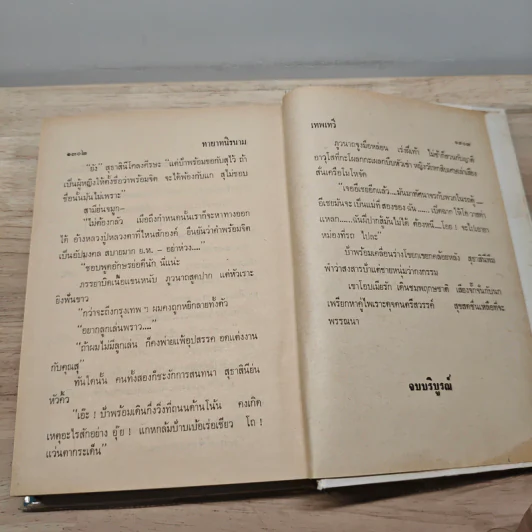 ๑๓๐๒ ทายาทนิรนาม
"ยัง" สุธาสินีโคลงศีรษะ "แต่ป้าพร้อมขอกับสุไว้ ถ้า
เป็นผู้หญิงให้ตั้งชื่อว่าพร้อมจิต จะได้พ้องกับแก สุไม่ชอบ
ชื่อนั้นมันไม่เพราะ"
สามีย่นจมูก
"ไม่ต้องกลัว เมื่อถึงกำหนดนั้นเราก็จะหาทางออก
ได้ อ้างหลวงปู่หลวงตาที่ไหนสักองค์ ยืนยันว่าคำพร้อมจิต
เป็นอัปมงคล สบายมาก อ.ห. – อย่าห่วง...."
"ชอบพูดยักษรย่อดีนัก นี่แน่ะ
ภรรยาบิดเนื้อแขนหนับ ภูวนาถสูดปาก แต่หัวเราะ
ยิงฟันขาว
"กว่าจะถึงกรุงเทพ ฯ ผมคงถูกหยิกลายทั้งตัว
"อยากลูกเล่นพราว...."
"ถ้าผมไม่มีลูกเล่น ก็คงพ่ายแพ้อุปสรรค อดแต่งงาน
กับคุณสุ"
ทันใดนั้น คนทั้งสองก็ชะงักการสนทนา สุธาสินีย่น
หัวคิ้ว
"เอ๊ะ ! ป้าพร้อมเดินกึ่งวิ่งที่ถนนด้านโน้น คงเกิด
เหตุอะไรสักอย่าง อุ๊ย ! แกหกล้มป้าบเบ้อเร่อเชียว โถ !
แว่นตากระเด็น"
เทพเทวี
ภูวนาถจูงมือหล่อน เร่งฝีเท้า ไม่ช้าก็สวนกับญาติ
"เจอผีเซอีกแล้ว....มันมาหัดนาจวกับพวกในรถตู้....
บ้าพร้อมเคลื่อนร่างโขยกเขยกคล้อยหลัง สุธาสินีพึม
พำว่าสงสารป้าแต่ชายหนุ่มว่ากงกรรม
เขาโอบเมียรัก เดินชมพฤกษชาติ เสียงจั๊กจั่นกับนก
เพรียกหาคู่ไพเราะดุจดนตรีสวรรค์ สุขสดชื่นเหลือที่จะ
พรรณนา
จบบริบูรณ์